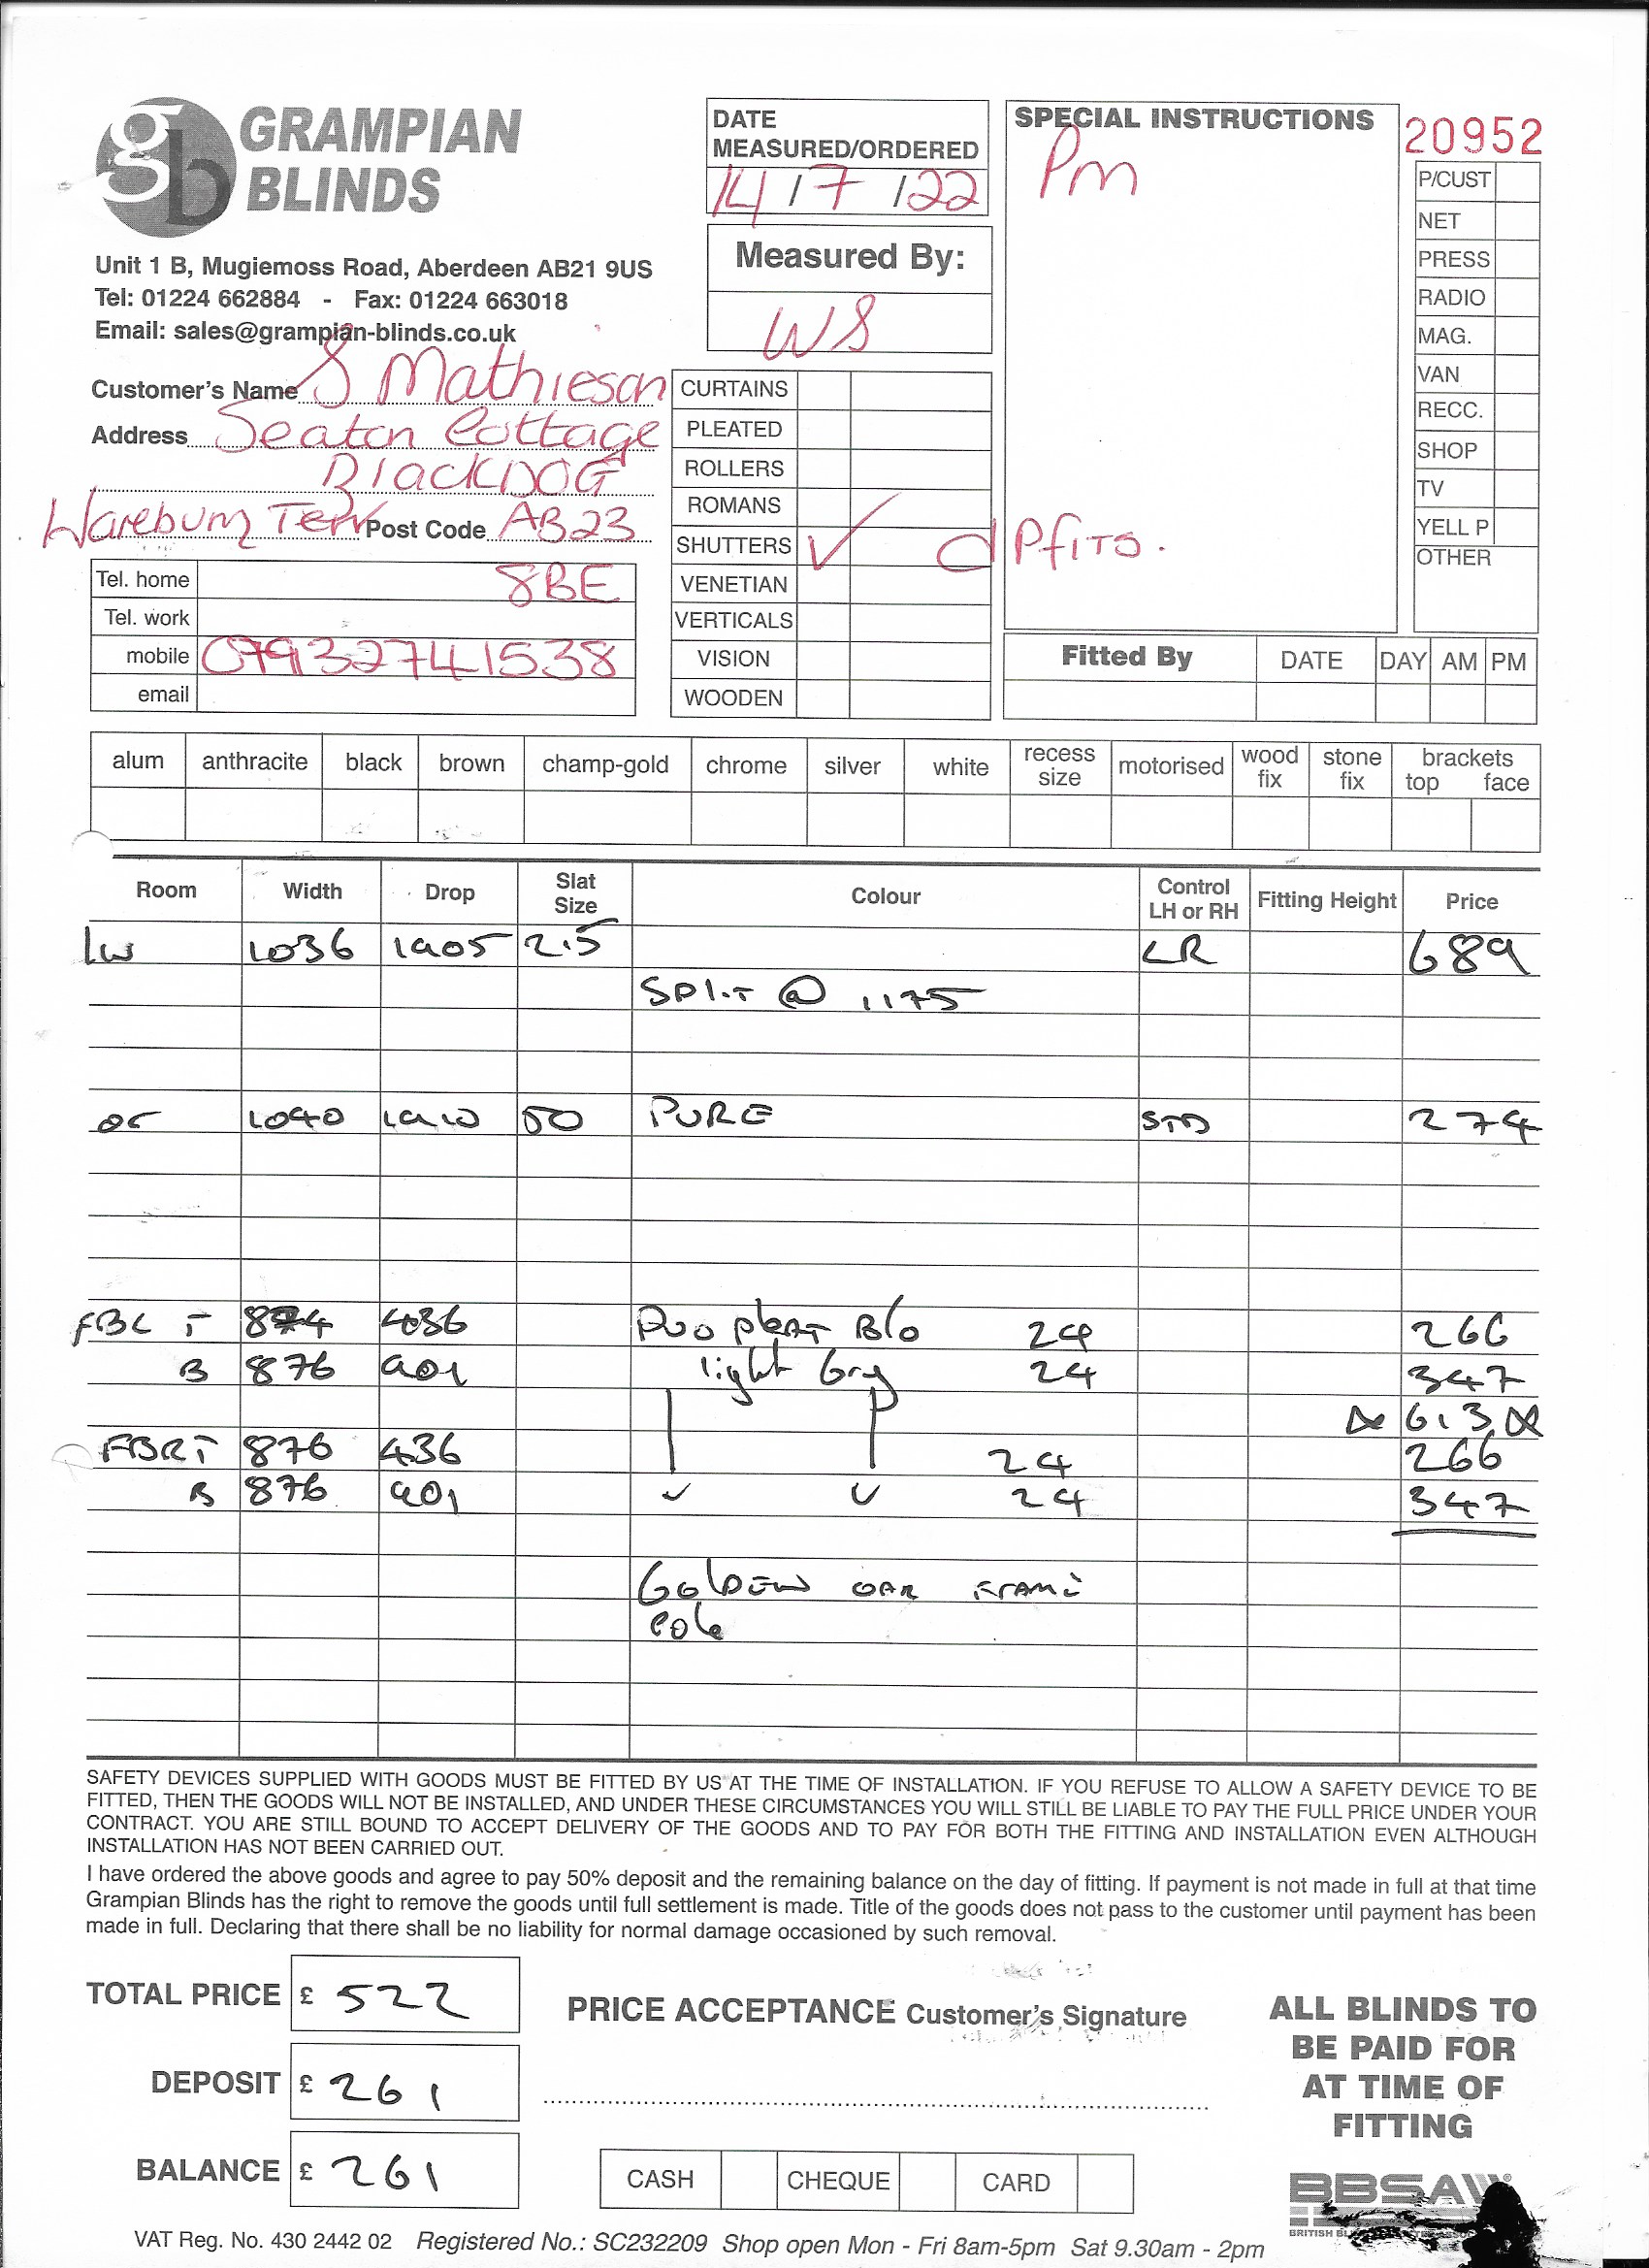 GRAMPIAN
BLINDS
Unit 1 B, Mugiemoss Road, Aberdeen AB21 9US
Tel: 01224 662884 - Fax: 01224 663018
Email: sales@grampian-blinds.co.uk
Customer's Name S Mathieson
Address Seaton Cottage
BlackDOG
Post Code AB23
8BE
Tel. home
Tel. work
mobile 07932741538
email
DATE
MEASURED/ORDERED
14/7/22
Measured By:
WS
CURTAINS
PLEATED
ROLLERS
ROMANS
SHUTTERS ✓
VENETIAN
VERTICALS
VISION
WOODEN
SPECIAL INSTRUCTIONS
Pm
20952
P/CUST
NET
PRESS
RADIO
MAG.
VAN
RECC.
SHOP
TV
YELL P
OTHER
Fitted By DATE DAY AM PM
alum anthracite black brown champ-gold chrome silver white recess size motorised wood fix stone fix brackets top face
Room Width Drop Slat Size Colour Control LH or RH Fitting Height Price
1036 1905 2.5 LR 689
SPLIT @ 1175
1040 1910 50 PURE STD 274
FBL T 874 436 Duo pleat B/o 24 266
B 876 901 light Gry 24 347
613
FBR T 876 436 24 266
B 876 901 24 347
GOLDEN OAK FRAME
SAFETY DEVICES SUPPLIED WITH GOODS MUST BE FITTED BY US AT THE TIME OF INSTALLATION. IF YOU REFUSE TO ALLOW A SAFETY DEVICE TO BE
FITTED, THEN THE GOODS WILL NOT BE INSTALLED, AND UNDER THESE CIRCUMSTANCES YOU WILL STILL BE LIABLE TO PAY THE FULL PRICE UNDER YOUR
CONTRACT. YOU ARE STILL BOUND TO ACCEPT DELIVERY OF THE GOODS AND TO PAY FOR BOTH THE FITTING AND INSTALLATION EVEN ALTHOUGH
INSTALLATION HAS NOT BEEN CARRIED OUT.
I have ordered the above goods and agree to pay 50% deposit and the remaining balance on the day of fitting. If payment is not made in full at that time
Grampian Blinds has the right to remove the goods until full settlement is made. Title of the goods does not pass to the customer until payment has been
made in full. Declaring that there shall be no liability for normal damage occasioned by such removal.
TOTAL PRICE £ 522
DEPOSIT £ 261
BALANCE £ 261
PRICE ACCEPTANCE Customer's Signature
CASH CHEQUE CARD
ALL BLINDS TO
BE PAID FOR
AT TIME OF
FITTING
BBSA
VAT Reg. No. 430 2442 02 Registered No.: SC232209 Shop open Mon - Fri 8am-5pm Sat 9.30am - 2pm